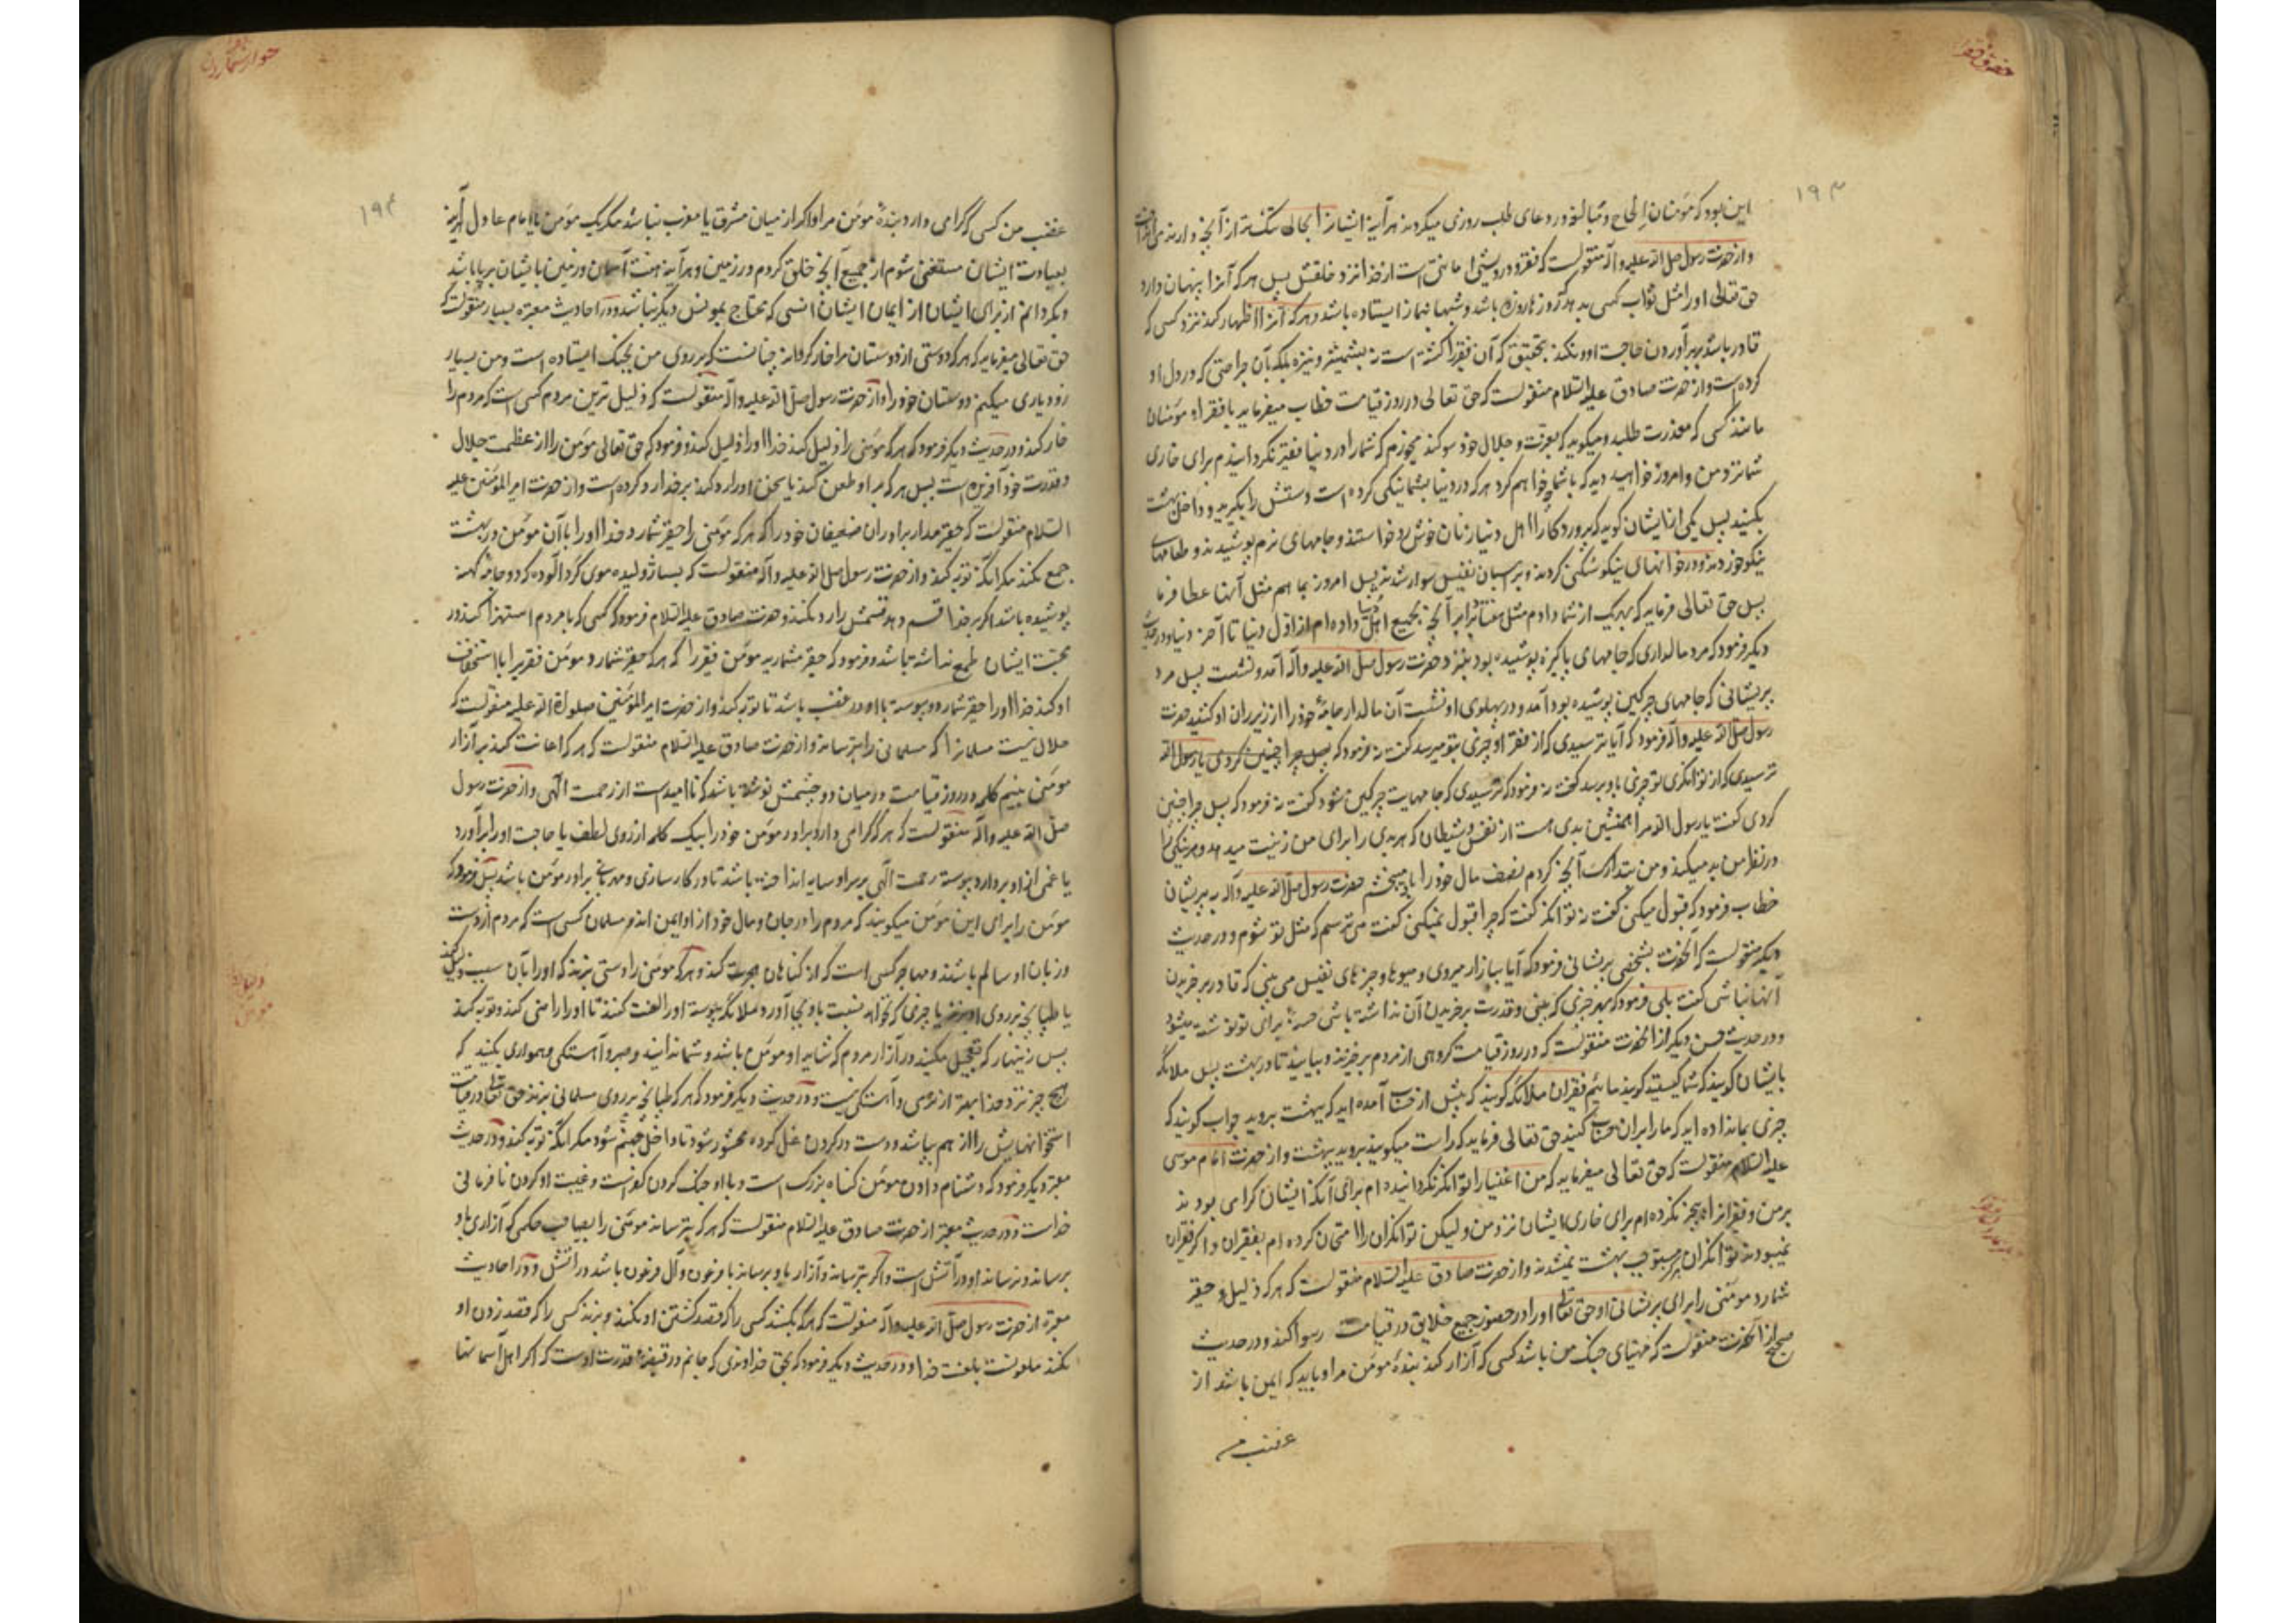 حقوق فقرا
۱۹۳
این بود که مؤمنان الحاح و مبالغه در دعای طلب روزی میکردند هرآینه ایشانرا بحالی تنگ‌تر از آنچه دارند می‌انداخت
و از حضرت رسول صلی الله علیه و آله منقولست که فقر و درویشی امانتی است از خدا نزد خلقش پس هر که آنرا پنهان دارد
حق تعالی او را مثل ثواب کسی بدهد که روزها روزه باشد و شبها بنماز ایستاده باشد و هر که آنرا اظهار کند نزد کسی که
قادر باشد بر برآوردن حاجت او و نکند بتحقیق که آن فقیر را کشته است نه بشمشیر و نیزه بلکه بآن جراحتی که در دل او
کرده است و از حضرت صادق علیه السلام منقولست که حق تعالی در روز قیامت خطاب میفرماید با فقراء مؤمنان
مانند کسی که معذرت طلبد و میگوید که بعزت و جلال خود سوگند میخورم که شما را در دنیا فقیر نگردانیدم برای خاری
شما نزد من و امروز خواهید دید که با شما چه خواهم کرد هر که در دنیا بشما نیکی کرده است دستش را بگیرید و داخل بهشت
بکنید پس یکی از ایشان گوید که پروردگارا اهل دنیا زنان خوش رو خواستند و جامهای نرم پوشیدند و طعامهای
نیکو خوردند و در خانهای نیکو سکنی کردند و بر اسبان نفیس سوار شدند پس امروز بما هم مثل آنها عطا فرما
پس حق تعالی فرماید که بهر یک از شما دادم مثل هفتاد برابر آنچه بجمیع اهل دنیا داده‌ام از اول دنیا تا آخر دنیا و در حدیث
دیگر فرمود که مرد مالداری که جامهای پاکیزه پوشیده بود بنزد حضرت رسول صلی الله علیه و آله آمد و نشست پس مرد
پریشانی که جامهای چرکین پوشیده بود آمد و در پهلوی او نشست آن مالدار جامهٔ خود را از زیر ران او کشید حضرت
رسول صلی الله علیه و آله فرمود که آیا ترسیدی که از فقر او چیزی بتو میرسد گفت نه فرمود که پس چرا چنین کردی یا رسول الله
ترسیدی که از توانگری تو چیزی باو برسد گفت نه فرمود که ترسیدی که جامهایت چرکین شود گفت نه فرمود که پس چرا چنین
کردی گفت یا رسول الله مرا همنشین بدی هست از نفس و شیطان که هر بدی را برای من زینت میدهد و هر نیکی را
در نظر من بد میکند و من بتدارک آنچه کردم نصف مال خود را باو میبخشم حضرت رسول صلی الله علیه و آله به پریشان
خطاب فرمود که قبول میکنی گفت نه توانگر گفت که چرا قبول نمیکنی گفت می‌ترسم که مثل تو شوم و در حدیث
دیگر منقولست که آنحضرت بشخصی پریشانی فرمود که آیا ببازار میروی و میوها و چیزهای نفیس می‌بینی که قادر بر خریدن
آنها نباشی گفت بلی فرمود که بهر چیزی که بینی و قدرت بر خریدن آن نداشته باشی حسنهٔ برای تو نوشته میشود
و در حدیث حسن دیگر از آنحضرت منقولست که در روز قیامت گروهی از مردم برخیزند و بیایند تا در بهشت پس ملائکه
بایشان گویند که شما کیستید گویند مائیم فقیران ملائکه گویند که پیش از حساب آمده‌اید که بهشت بروید جواب گویند که
چیزی بما نداده‌اید که ما را بر آن حساب کنید حق تعالی فرماید که راست میگویند بروید ببهشت و از حضرت امام موسی
علیه السلام منقولست که حق تعالی میفرماید که من اغنیا را توانگر نگردانیده‌ام برای آنکه ایشان گرامی بودند
بر من و فقیرانرا هم فقیر نکرده‌ام برای خاری ایشان نزد من و لیکن توانگران را امتحان کرده‌ام بفقیران و اگر فقیران
نمیبودند توانگران مستوجب بهشت نمیشدند و از حضرت صادق علیه السلام منقولست که هر که ذلیل و حقیر
شمارد مؤمنی را برای پریشانی او حق تعالی او را در حضور جمیع خلایق در قیامت رسوا کند و در حدیث
صحیح از آنحضرت منقولست که مهیای جنگ من باشد کسی که آزار کند بندهٔ مؤمن مرا و باید که ایمن باشد از
غضب من
۱۹۴
غضب من کسی که گرامی دارد بندهٔ مؤمن مرا و اگر از میان مشرق یا مغرب نباشد مگر یک مؤمن با امام عادل هرآینه
بعبادت ایشان مستغنی شوم از جمیع آنچه خلق کردم در زمین و هرآینه هفت آسمان و زمین بایشان برپا باشد
و بگردانم از برای ایشان از ایمان ایشان انسی که محتاج بمونس دیگر نباشند و در احادیث معتبره بسیار منقولست که
حق تعالی میفرماید که هر که دوستی از دوستان مرا خار گرداند چنانست که بر روی من بجنگ ایستاده است و من بسیار
زود یاری میکنم دوستان خود را و از حضرت رسول صلی الله علیه و آله منقولست که ذلیل ترین مردم کسی است که مردم را
خار کند و در حدیث دیگر فرمود که هر که مؤمنی را ذلیل کند خدا او را ذلیل کند و فرمود که حق تعالی مؤمن را از عظمت جلال
و قدرت خود آفریده است پس هر که بر او طعن کند یا سخن او را رد کند بر خدا رد کرده است و از حضرت امیر المؤمنین علیه
السلام منقولست که حقیر مدار برادران ضعیفان خود را که هر که مؤمنی را حقیر شمارد خدا او را با آن مؤمن در بهشت
جمع نکند مگر آنکه توبه کند و از حضرت رسول صلی الله علیه و آله منقولست که بسا ژولیده موی گرد آلوده که دو جامهٔ کهنه
پوشیده باشد اگر بر خدا قسم دهد قسمش را رد نکند و حضرت صادق علیه السلام فرمود که کسی که با مردم استهزا کند در
محبت ایشان طمع نداشته باشد و فرمود که حقیر مشمارید مؤمن فقیر را که هر که حقیر شمارد مؤمن فقیر را یا استخفاف
او کند خدا او را حقیر شمارد و پیوسته با او در غضب باشد تا توبه کند و از حضرت امیر المؤمنین صلوات الله علیه منقولست که
حلال نیست مسلمانرا که مسلمانی را بترساند و از حضرت صادق علیه السلام منقولست که هر که اعانت کند بر آزار
مؤمنی بنیم کلمه در روز قیامت در میان دو چشمش نوشته باشد که ناامید است از رحمت الهی و از حضرت رسول
صلی الله علیه و آله منقولست که هر که گرامی دارد برادر مؤمن خود را بیک کلمه از روی لطف یا حاجت او را برآورد
یا غمی از او بردارد پیوسته رحمت الهی بر سر او سایه انداخته باشد تا در کارسازی و مهربانی برادر مؤمن باشد پس فرمود که
مؤمن را برای این مؤمن میگویند که مردم را در جان و مال خود از او ایمن اند و مسلمان کسی است که مردم از دست
و زبان او سالم باشند و مهاجر کسی است که از گناهان هجرت کند و هر که مؤمنی را دستی بزند که او را بآن سبب ذلیل کند
یا طپانچه بر روی او بزند یا چیزی که نخواهد نسبت باو بجا آورد ملائکه پیوسته او را لعنت کنند تا او را راضی کند و توبه کند
پس زینهار که تعجیل مکنید در آزار مردم که شاید او مؤمن باشد و شما ندانید و صبر و آهستگی و همواری بکنید که
هیچ چیز نزد خدا بهتر از نرمی و آهستگی نیست و در حدیث دیگر فرمود که هر که طپانچه بر روی مسلمانی بزند حق تعالی در قیامت
استخوانهایش را از هم بپاشد و دست در گردن غل کرده محشور شود تا داخل جهنم شود مگر آنکه توبه کند و در حدیث
معتبر دیگر فرمود که دشنام دادن مؤمن گناه بزرگ است و با او جنگ کردن کفر است و غیبت او کردن نافرمانی
خداست و در حدیث معتبر از حضرت صادق علیه السلام منقولست که هر که بترساند مؤمنی را بصاحب حکمی که آزاری باو
برساند و نرساند او در آتش است و اگر بترساند و آزار باو برساند با فرعون و آل فرعون باشد در آتش و در احادیث
معتبره از حضرت رسول صلی الله علیه و آله منقولست که هر که بکشد کسی را که قصد کشتن او نکند و بزند کسی را که قصد زدن او
نکند ملعونست بلعنت خدا و در حدیث دیگر فرمود که بحق خداوندی که جانم در قبضهٔ قدرت اوست که اگر اهل آسمانها